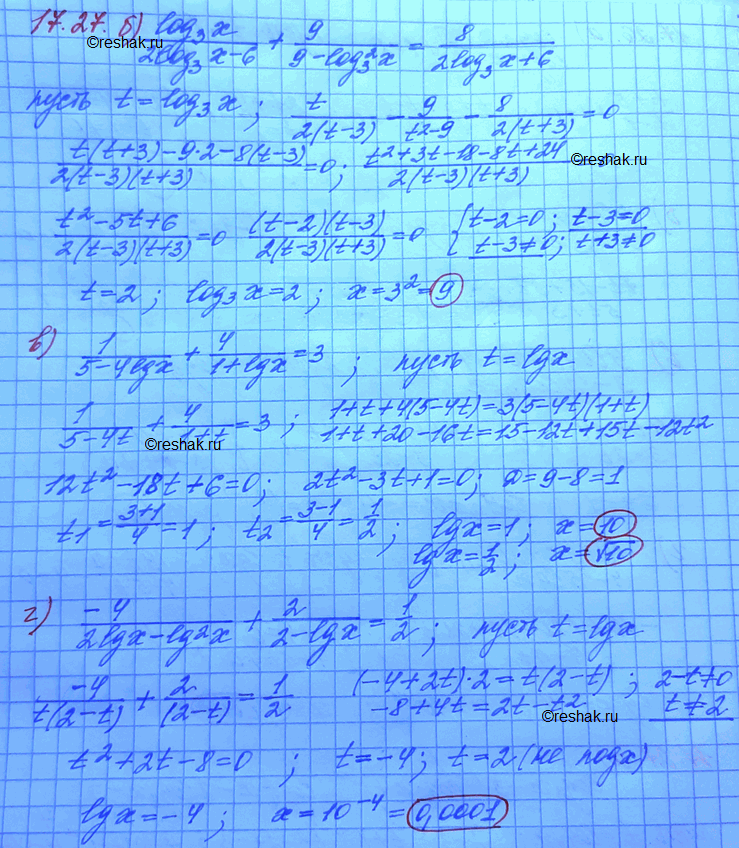 17.27. б) log₃x/(2log₃x-6) + 9/(9-log₃²x) = 8/(2log₃x+6)
©reshak.ru
пусть t=log₃x; t/(2(t-3)) - 9/(t²-9) - 8/(2(t+3)) = 0
(t(t+3)-9·2-8(t-3))/(2(t-3)(t+3)) = 0; (t²+3t-18-8t+24)/(2(t-3)(t+3))
©reshak.ru
(t²-5t+6)/(2(t-3)(t+3)) = 0 (t-2)(t-3)/(2(t-3)(t+3)) = 0 { t-2=0; t-3=0
t-3≠0; t+3≠0
t=2; log₃x=2; x=3²=9
в) 1/(5-4lgx) + 4/(1+lgx) = 3; пусть t=lgx
1/(5-4t) + 4/(1+t) = 3; 1+t+4(5-4t)=3(5-4t)(1+t)
©reshak.ru
1+t+20-16t=15-12t+15t-12t²
12t²-18t+6=0; 2t²-3t+1=0; D=9-8=1
t₁=(3+1)/4=1; t₂=(3-1)/4=1/2; lgx=1; x=10
lgx=1/2; x=√10
г) -4/(2lgx-lg²x) + 2/(2-lgx) = 1/2; пусть t=lgx
-4/(t(2-t)) + 2/(2-t) = 1/2 (-4+2t)·2=t(2-t); 2-t≠0
-8+4t=2t-t² t≠2
©reshak.ru
t²+2t-8=0; t=-4; t=2 (не подх)
lgx=-4; x=10⁻⁴=0,0001